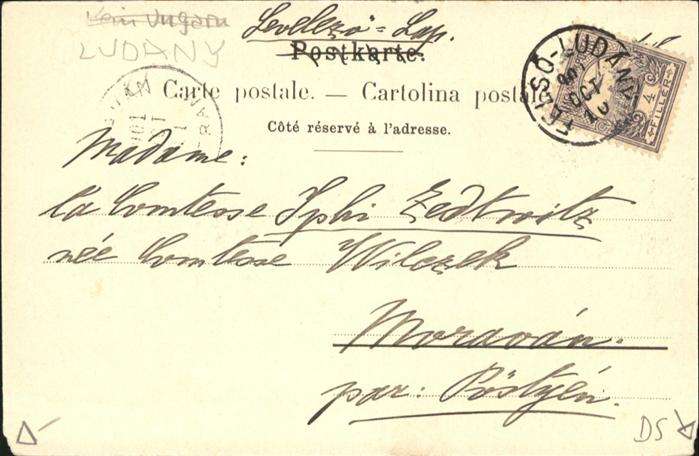 Ungarn
LUDANY
Levelező-Lap.
Postkarte.
Carte postale. — Cartolina postale
Côté réservé à l'adresse.
FELSŐ-LUDÁNY
OCT
4
FILLÉR
Madame:
la Comtesse Iphi Zedtwitz
née Comtesse Wilczek
Moraván.
par: Pöstyén.
DS